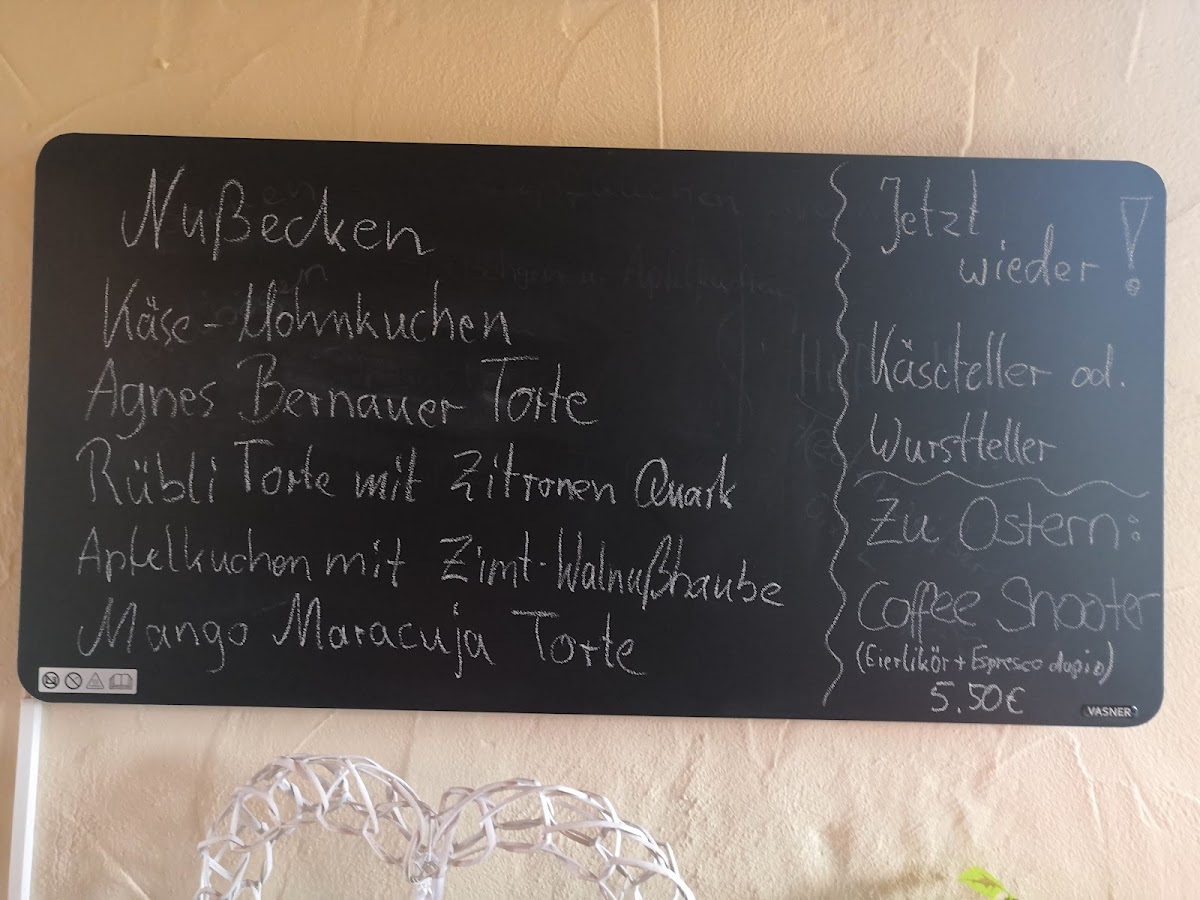 Nußecken
Käse-Mohnkuchen
Agnes Bernauer Torte
Rübli Torte mit Zitronen Quark
Apfelkuchen mit Zimt-Walnußhaube
Mango Maracuja Torte
Jetzt
wieder !
Käseteller od.
Wurstteller
Zu Ostern:
Coffee Shooter
(Eierlikör + Espresso dopio)
5.50€
VASNER